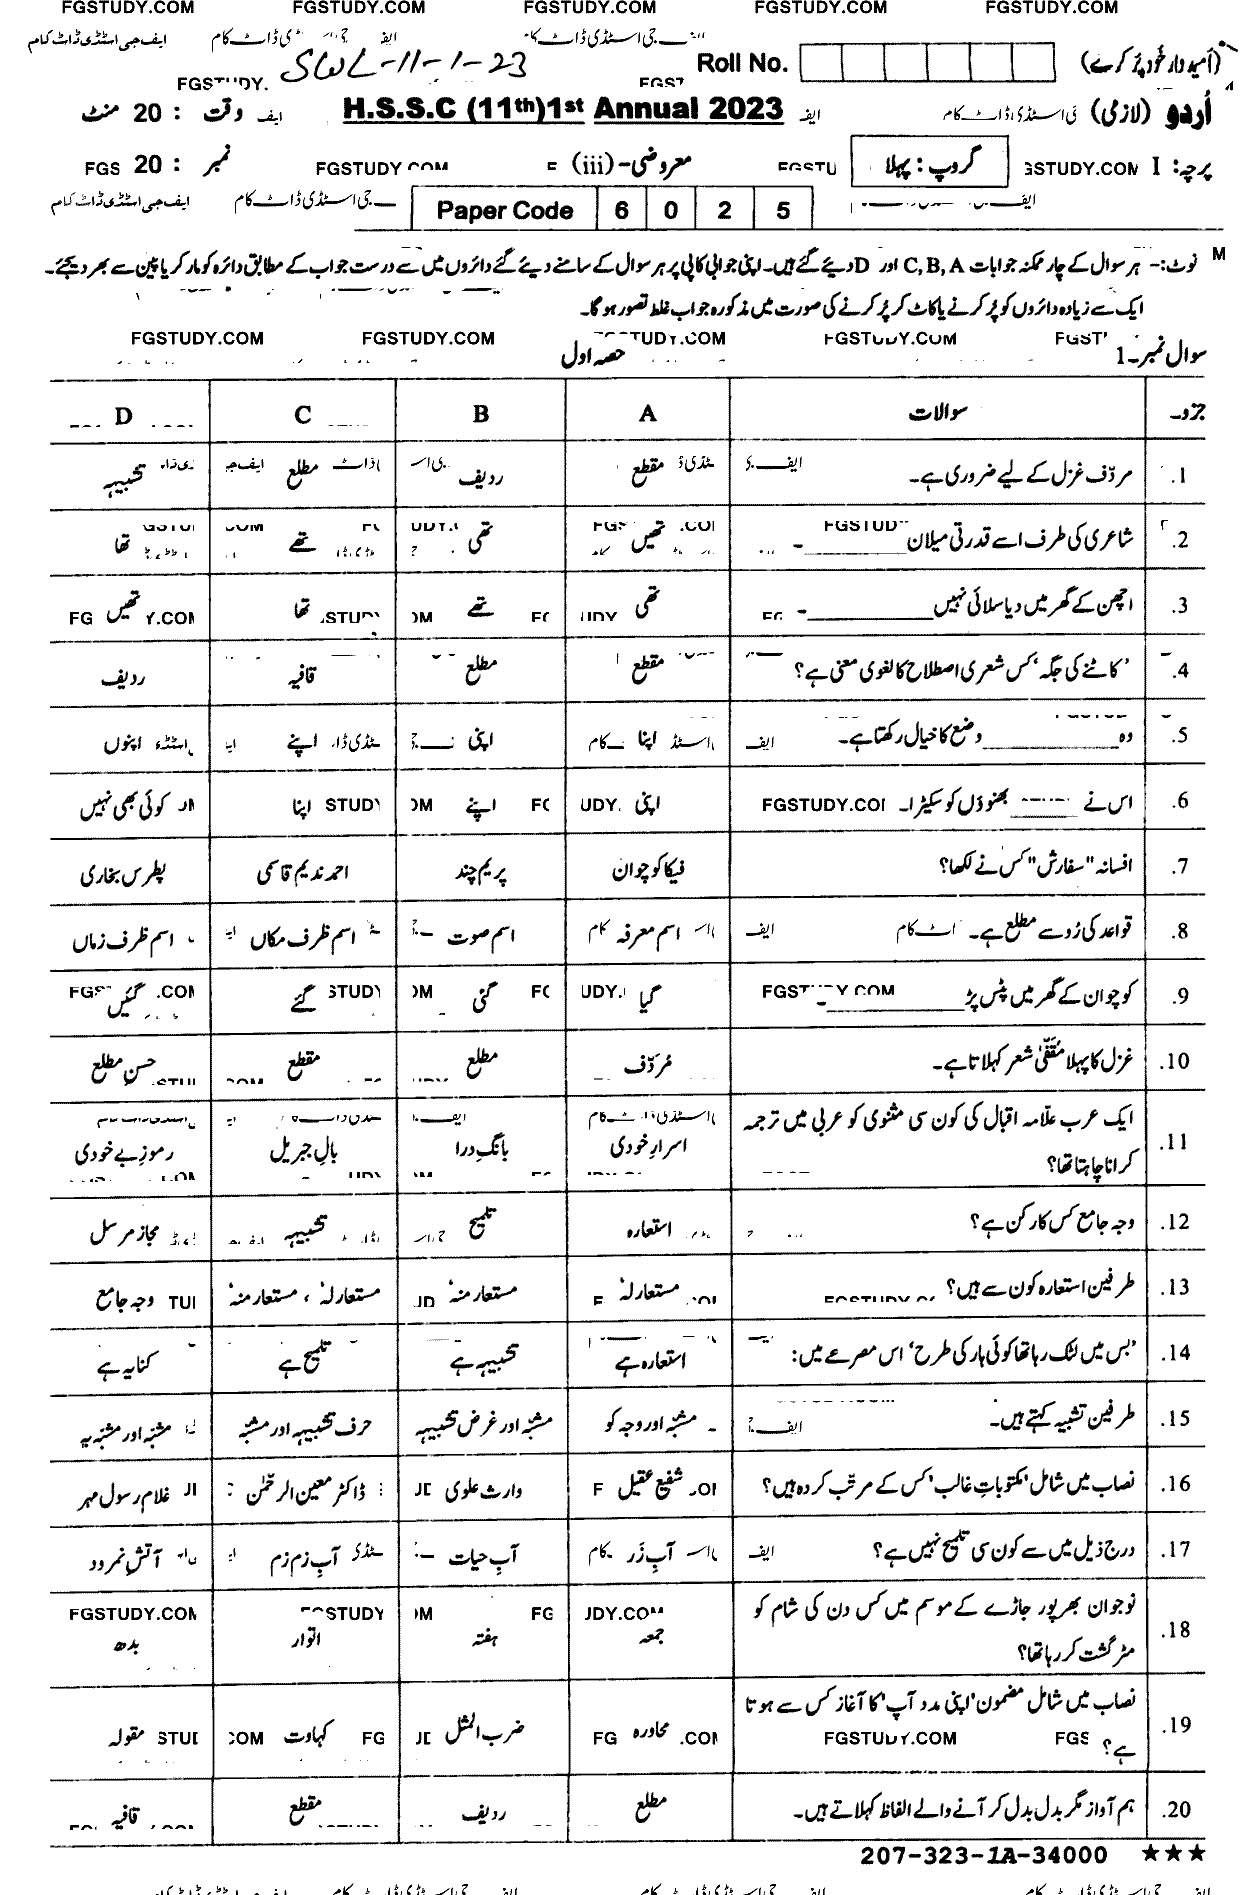 FGSTUDY.COM FGSTUDY.COM FGSTUDY.COM FGSTUDY.COM FGSTUDY.COM
ایف جی اسٹڈی ڈاٹ کام
(اُمیدوار خود پُر کرے) Roll No. SWL-11-1-23
اُردو (لازمی) H.S.S.C (11th)1st Annual 2023 وقت : 20 منٹ
پرچہ: I گروپ: پہلا معروضی-(iii) FGSTUDY.COM نمبر : 20
Paper Code 6 0 2 5
نوٹ:- ہر سوال کے چار ممکنہ جوابات C, B, A اور D دیئے گئے ہیں۔ اپنی جوابی کاپی پر ہر سوال کے سامنے دیئے گئے دائروں میں سے درست جواب کے مطابق دائرہ کو مارکر یا پین سے بھر دیجئے۔
ایک سے زیادہ دائروں کو پُر کرنے یا کاٹ کر پُر کرنے کی صورت میں مذکورہ جواب غلط تصور ہوگا۔
FGSTUDY.COM FGSTUDY.COM FGSTUDY.COM
سوال نمبر۔1 حصہ اول
جزو۔ سوالات A B C D
1. مردّف غزل کے لیے ضروری ہے۔ مقطع ردیف مطلع تشبیہہ
2. شاعری کی طرف اسے قدرتی میلان ________۔ تھیں تھی تھے تھا
3. اچھن کے گھر میں دیا سلائی نہیں ________۔ تھی تھے تھا تھیں
4. 'کاٹنے کی جگہ' کس شعری اصطلاح کا لغوی معنی ہے؟ مقطع مطلع قافیہ ردیف
5. وہ ________ وضع کا خیال رکھتا ہے۔ اپنا اپنی اپنے اپنوں
6. اس نے ________ بھنوؤں کو سکیڑا۔ اپنی اپنے اپنا کوئی بھی نہیں
7. افسانہ "سفارش" کس نے لکھا؟ فیکا کوچوان پریم چند احمد ندیم قاسمی پطرس بخاری
8. قواعد کی رُو سے مطلع ہے۔ اسم معرفہ اسم صوت اسم ظرف مکاں اسم ظرف زماں
9. کوچوان کے گھر میں پٹس پڑ ________۔ گیا گئی گئے گئیں
10. غزل کا پہلا مُقفّیٰ شعر کہلاتا ہے۔ مُردّف مطلع مقطع حسنِ مطلع
11. ایک عرب علّامہ اقبال کی کون سی مثنوی کو عربی میں ترجمہ
کرانا چاہتا تھا؟ اسرارِ خودی بانگِ درا بالِ جبریل رموزِ بے خودی
12. وجہ جامع کس کا رکن ہے؟ استعارہ تلمیح تشبیہہ مجاز مرسل
13. طرفین استعارہ کون سے ہیں؟ مستعار لہٗ مستعار منہٗ مستعار لہٗ ، مستعار منہٗ وجہ جامع
14. 'بس میں لٹک رہا تھا کوئی ہار کی طرح' اس مصرعے میں: استعارہ ہے تشبیہہ ہے تلمیح ہے کنایہ ہے
15. طرفین تشبیہ کہتے ہیں۔ مشبّہ اور وجہ کو مشبّہ اور غرض تشبیہہ حرف تشبیہہ اور مشبّہ مشبّہ اور مشبّہ بہ
16. نصاب میں شامل 'مکتوباتِ غالب' کس کے مرتّب کردہ ہیں؟ شفیع عقیل وارث علوی ڈاکٹر معین الرحمٰن غلام رسول مہر
17. درج ذیل میں سے کون سی تلمیح نہیں ہے؟ آبِ زَر آبِ حیات آبِ زم زم آتشِ نمرود
18. نوجوان بھرپور جاڑے کے موسم میں کس دن کی شام کو
مٹر گشت کر رہا تھا؟ جمعہ ہفتہ اتوار بدھ
19. نصاب میں شامل مضمون 'اپنی مدد آپ' کا آغاز کس سے ہوتا
ہے؟ محاورہ ضرب المثل کہاوت مقولہ
20. ہم آواز مگر بدل بدل کر آنے والے الفاظ کہلاتے ہیں۔ مطلع ردیف مقطع قافیہ
207-323-1A-34000 ★★★